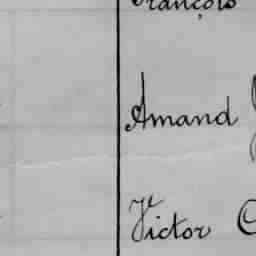 François
Amand
Victor